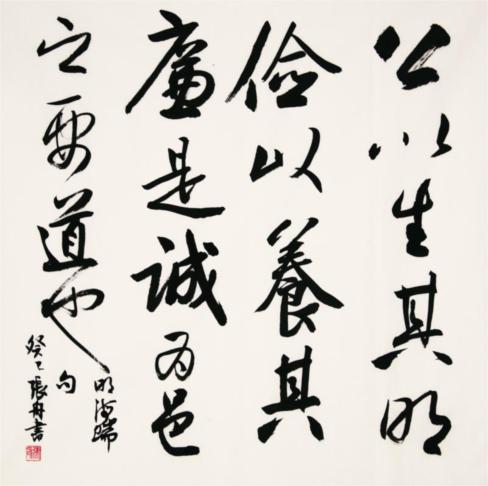 公以生其明
儉以養其
廉是誠為邑
之要道也
明海瑞
句
癸巳張舟書